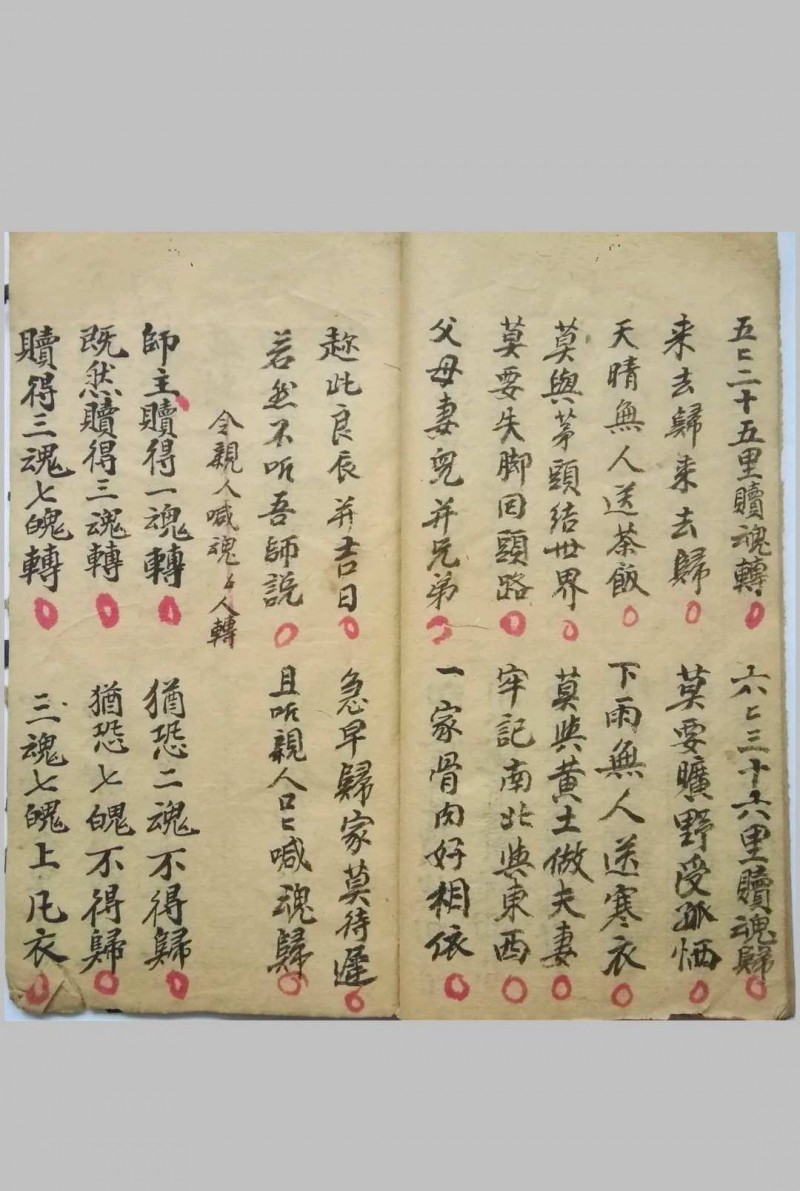 五〻二十五里贖魂轉 六〻三十六里贖魂歸
来去歸来去歸 莫要曠野受孤恓
天晴無人送茶飯 下雨無人送寒衣
莫與茅頭結世界 莫与黄土做夫妻
莫要失脚回頭路 牢記南北與東西
父母妻兒并兄弟 一家骨肉好相依
趂此良辰并吉日 急早歸家莫待遲
若然不听吾師説 且听親人口〻喊魂歸
令親人喊魂〻人轉
師主贖得一魂轉 猶恐二魂不得歸
既然贖得三魂轉 猶恐七魄不得歸
贖得三魂七魄轉 三魂七魄上凡衣